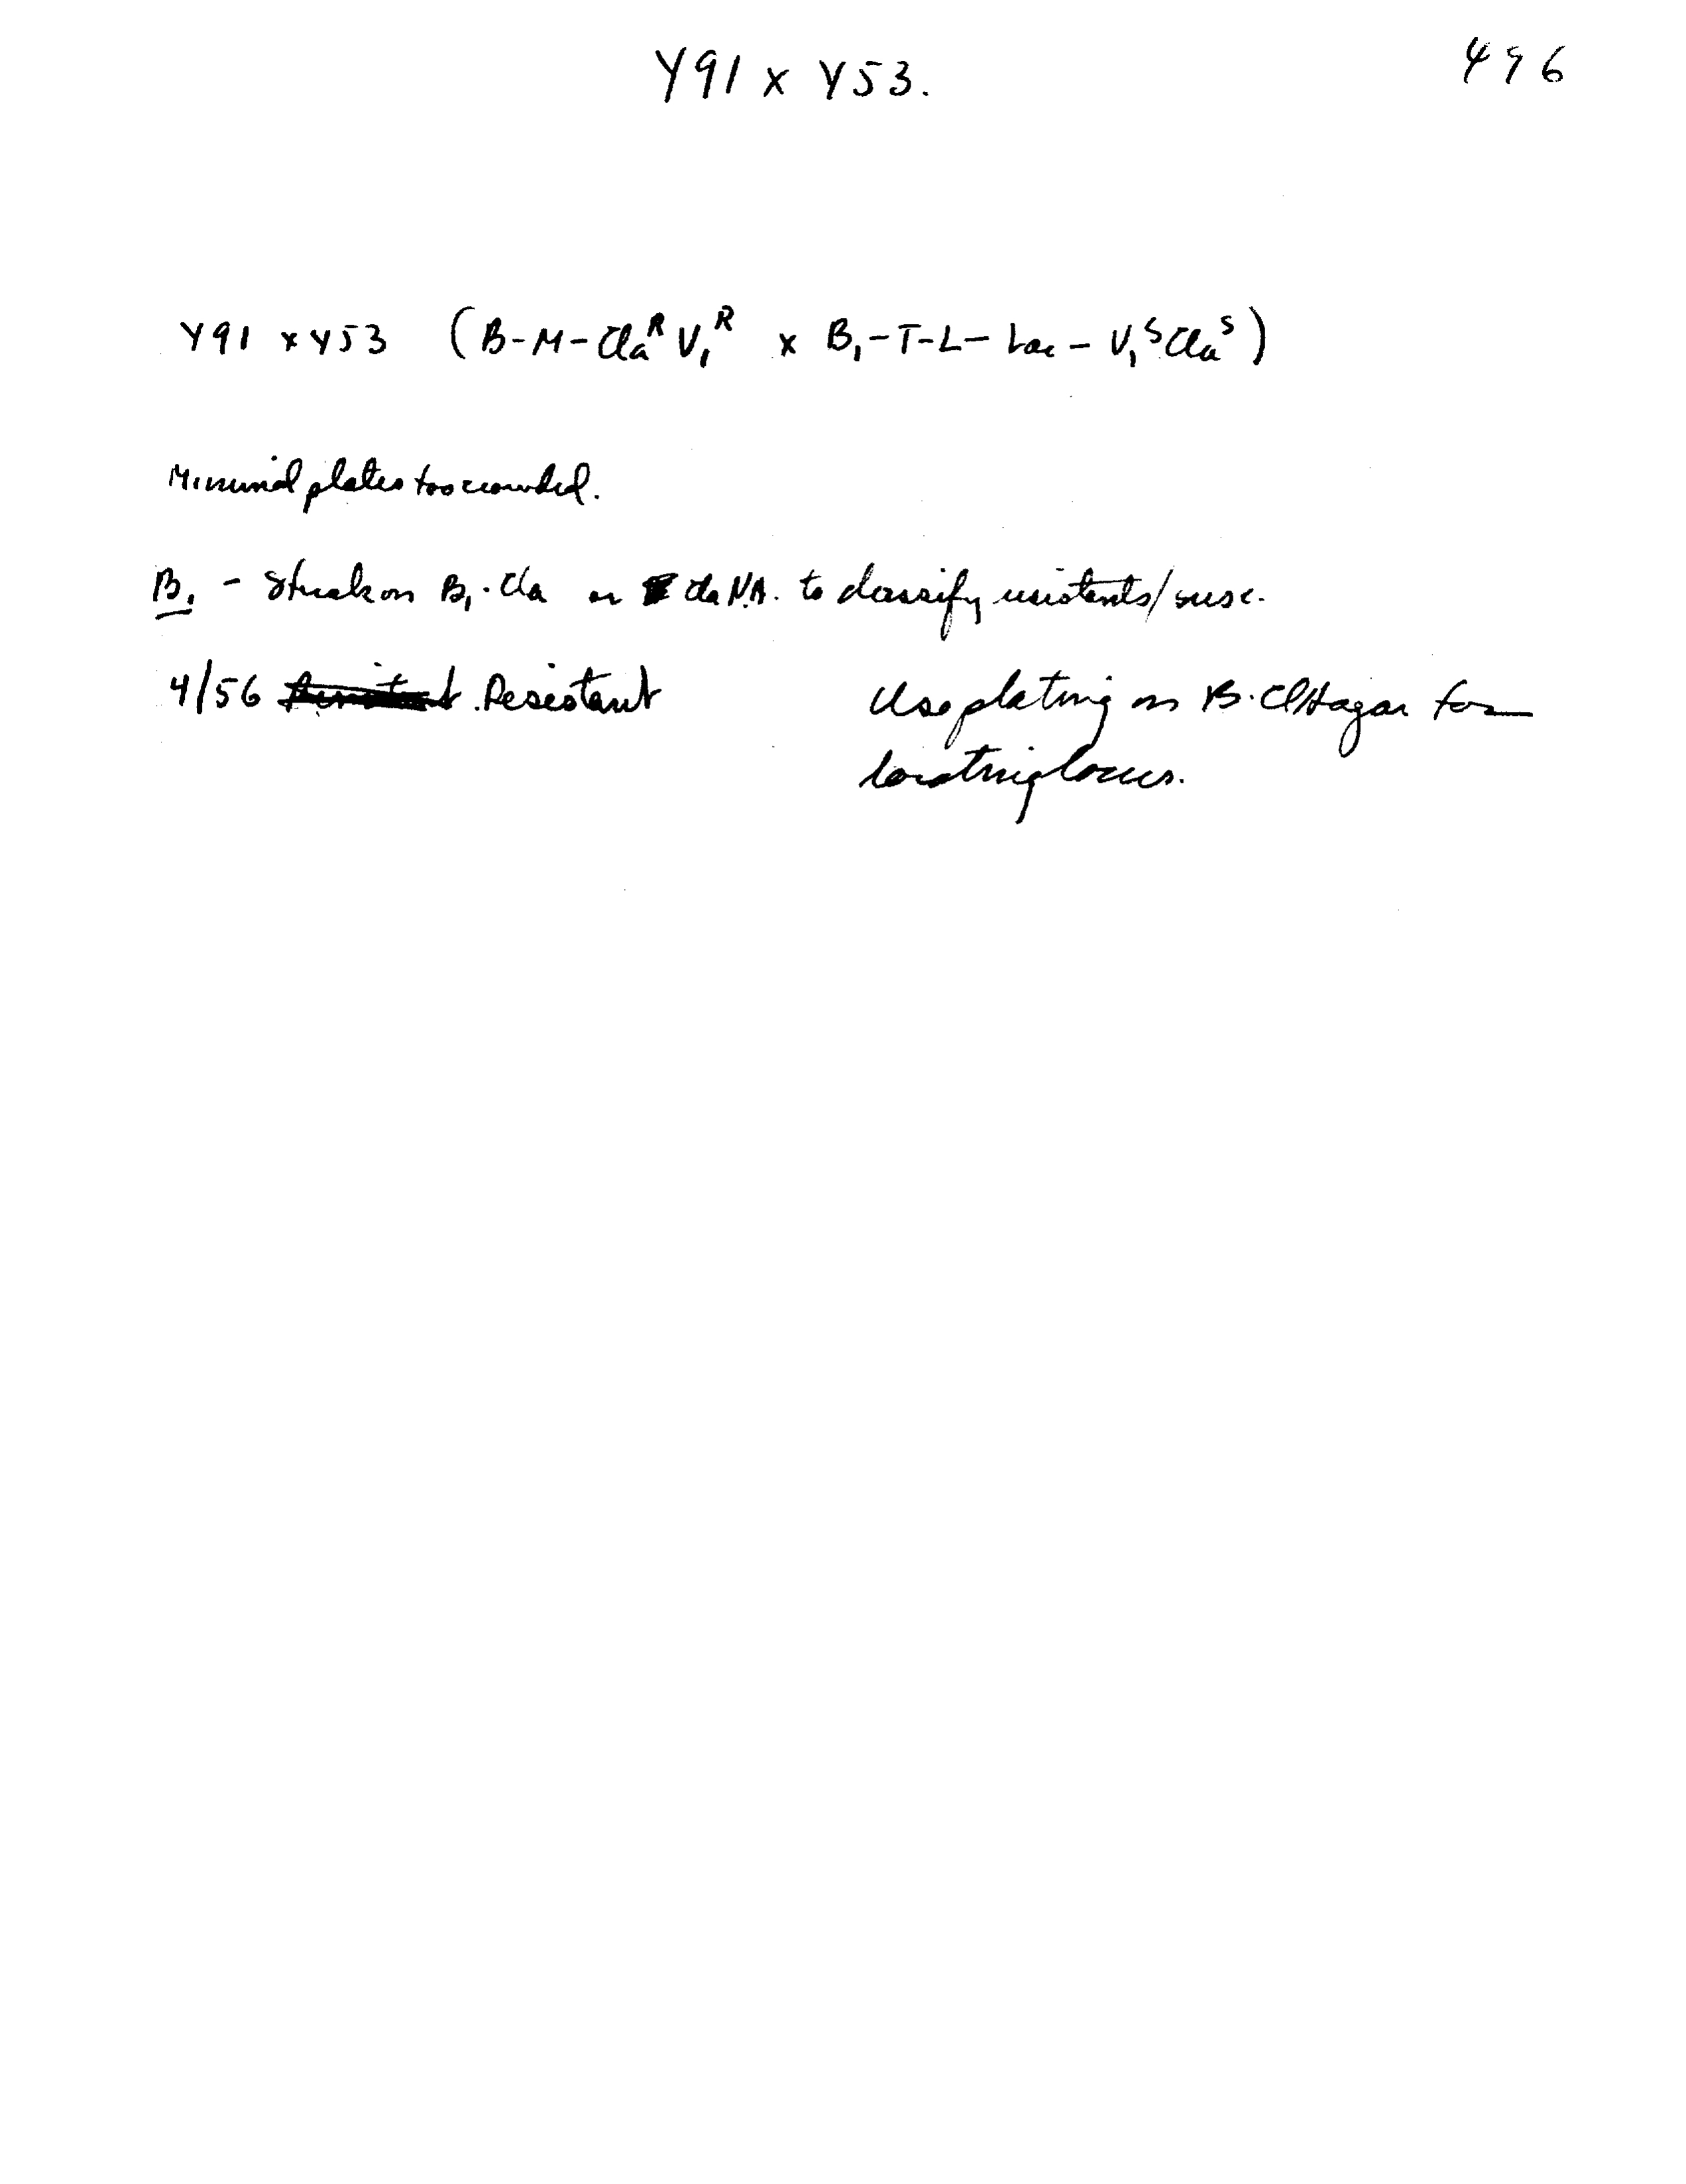 Y91 x Y53.
496
Y91 x Y53 (B-M-Claᴿ V₁ᴿ x B₁-T-L-Lac-V₁ˢ Claˢ)
Minimal plates too crowded.
B₁ - Streak on B₁·Cla or Cla N.A. to classify resistants/susc.
4/56 Resistant
Use plating on B· agar for
locating locus.